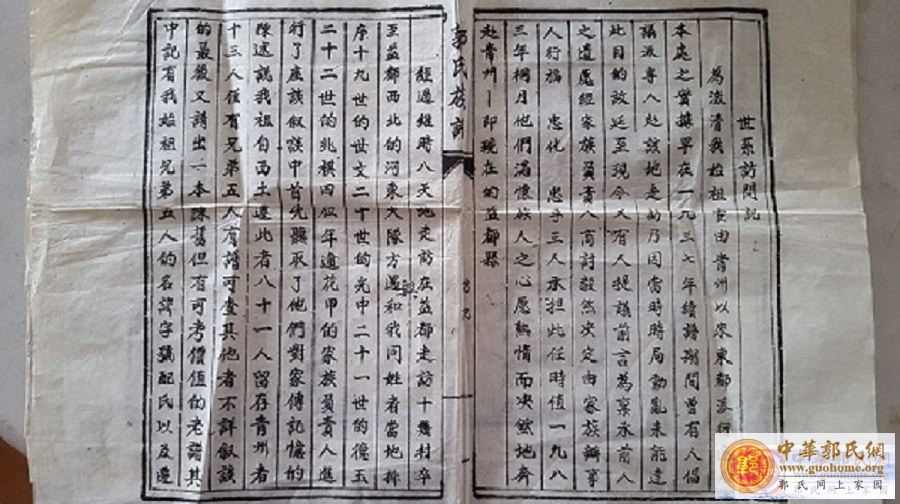 世系訪問記
為澂清我始祖宦由青州以來東部落
本處之實據早在一九三七年續譜期間曾有人倡
議派專人赴該地走訪乃因當時時局動亂未能達
此目的故延至現今又有人提議前言為稟承前人
之遺愿經家族負責人商討毅然決定由家族辦事
人行福 忠化 忠予三人承担此任時值一九八
三年桐月他們滿懷族人之心愿熱情而决然地奔
赴青州——即現在的益都縣
郭氏族譜
經過短時八天地走訪在益都走訪十幾村卒
至益都西北的河東大隊方遇和我同姓者當地
序十九世的世文二十世的光中二十一世的德玉
二十二世的兆祺四位年逾花甲的家族負責人進
行了座談叙談中首先聽取了他們對家傳記憶的
陳述説我祖自西土遷此者八十一人留存青州者
十三人僅有兄弟五人有譜可查其他者不詳叙談
的最後又請出一本陳舊但有可考價值的老譜其
中記有我始祖兄弟五人的名諱字號配氏以及遷
中華郭氏網
www.guohome.org
郭氏網上家園